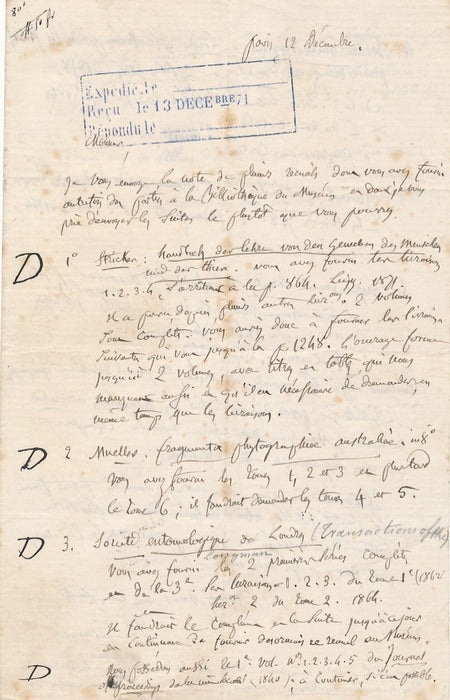 Paris 12 Décembre.
Expédié le
Reçu le 13 DECEBRE 71
Répondu le
Monsieur
Je vous envoye la note de plusieurs recueils dont vous avez fourni
autrefois des parties à la Bibliothèque du Muséum en vous
priant d'envoyer les suites le plustôt que vous pourrez
D 1° Stricker: Handbuch der lehre von den Geweben des Menschen
und der thiere. vous avez fourni les livraisons
1. 2. 3. 4, s'arrêtant à la p. 864. Leipz. 1871.
Il a paru depuis plusieurs autres livrons. 2 volumes
sont complets. vous auriez donc à fournir les livraisons
suivantes qui vont jusqu'à la p 1248. L'ouvrage forme
jusqu'ici 2 volumes, avec titres et table, qui nous
manquent aussi et qu'il est nécessaire de demander en
même temps que les livraisons.
D 2 Mueller. fragmenta phytographiae australiae. in 8°
Vous avez fourni les tomes 1, 2 et 3 et plus tard
le tome 6; il faudrait demander les tomes 4 et 5.
D 3. Société entomologique de Londres (Transactions of the)
Longman
Vous avez fourni les 2 premières séries complètes
et de la 3e les livraisons 1. 2. 3. du tome 1er (1862
et 2 du tome 2. 1864.
Il faudrait le complément et la suite jusqu'à ce jour
et continuer de fournir désormais ce recueil au Muséum.
D Vous possédez aussi le 1er vol. nos 1. 2. 3. 4. 5 du Journal
of proceedings de la même société 1840 à Continuer, si c'est possible.